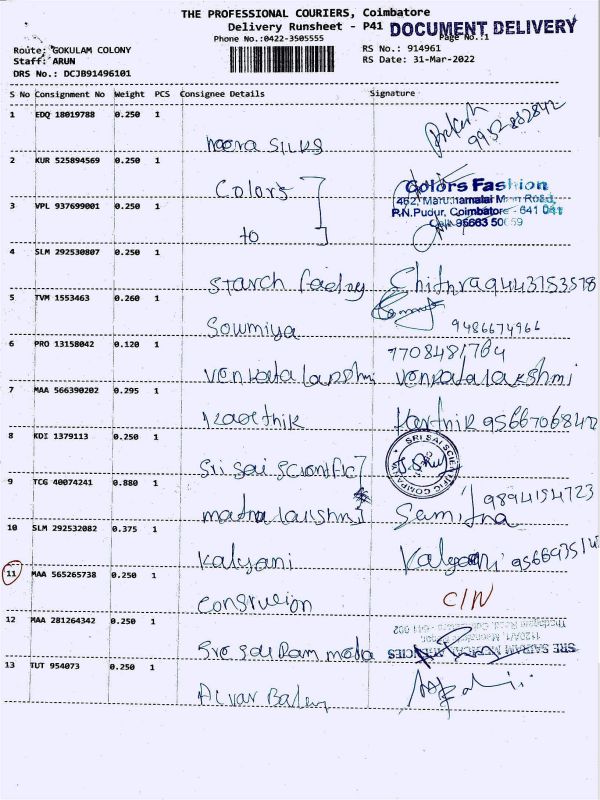 THE PROFESSIONAL COURIERS, Coimbatore
Delivery Runsheet - P41
DOCUMENT DELIVERY
Phone No.:0422-3505555
Page No.:1
Route: GOKULAM COLONY
RS No.: 914961
Staff: ARUN
RS Date: 31-Mar-2022
DRS No.: DCJB91496101
S No Consignment No Weight PCS Consignee Details Signature
1 EDQ 18019788 0.250 1
noora SILKS 9952882842
2 KUR 525894569 0.250 1
Colors
Colors Fashion
462, Maruthamalai Main Road,
3 VPL 937699001 0.250 1
P.N.Pudur, Coimbatore - 641 041
to
Cell: 95663 50059
4 SLM 292530807 0.250 1
Starch factory Chithra 9443753578
5 TVM 1553463 0.260 1
Soumiya 9486674966
6 PRO 13158042 0.120 1
7708481784
Venkata lakshmi Venkatalakshmi
7 MAA 566390202 0.295 1
Karthik Karthik
8 KDI 1379113 0.250 1
Sri Sai Scientific
SRI SAI SCIENTIFIC COMPANY
9 TCG 40074241 0.880 1
9894154723
10 SLM 292532082 0.375 1
Kalyani Kalyani
11 MAA 565265738 0.250 1
C/N
12 MAA 281264342 0.250 1
13 TUT 954073 0.250 1